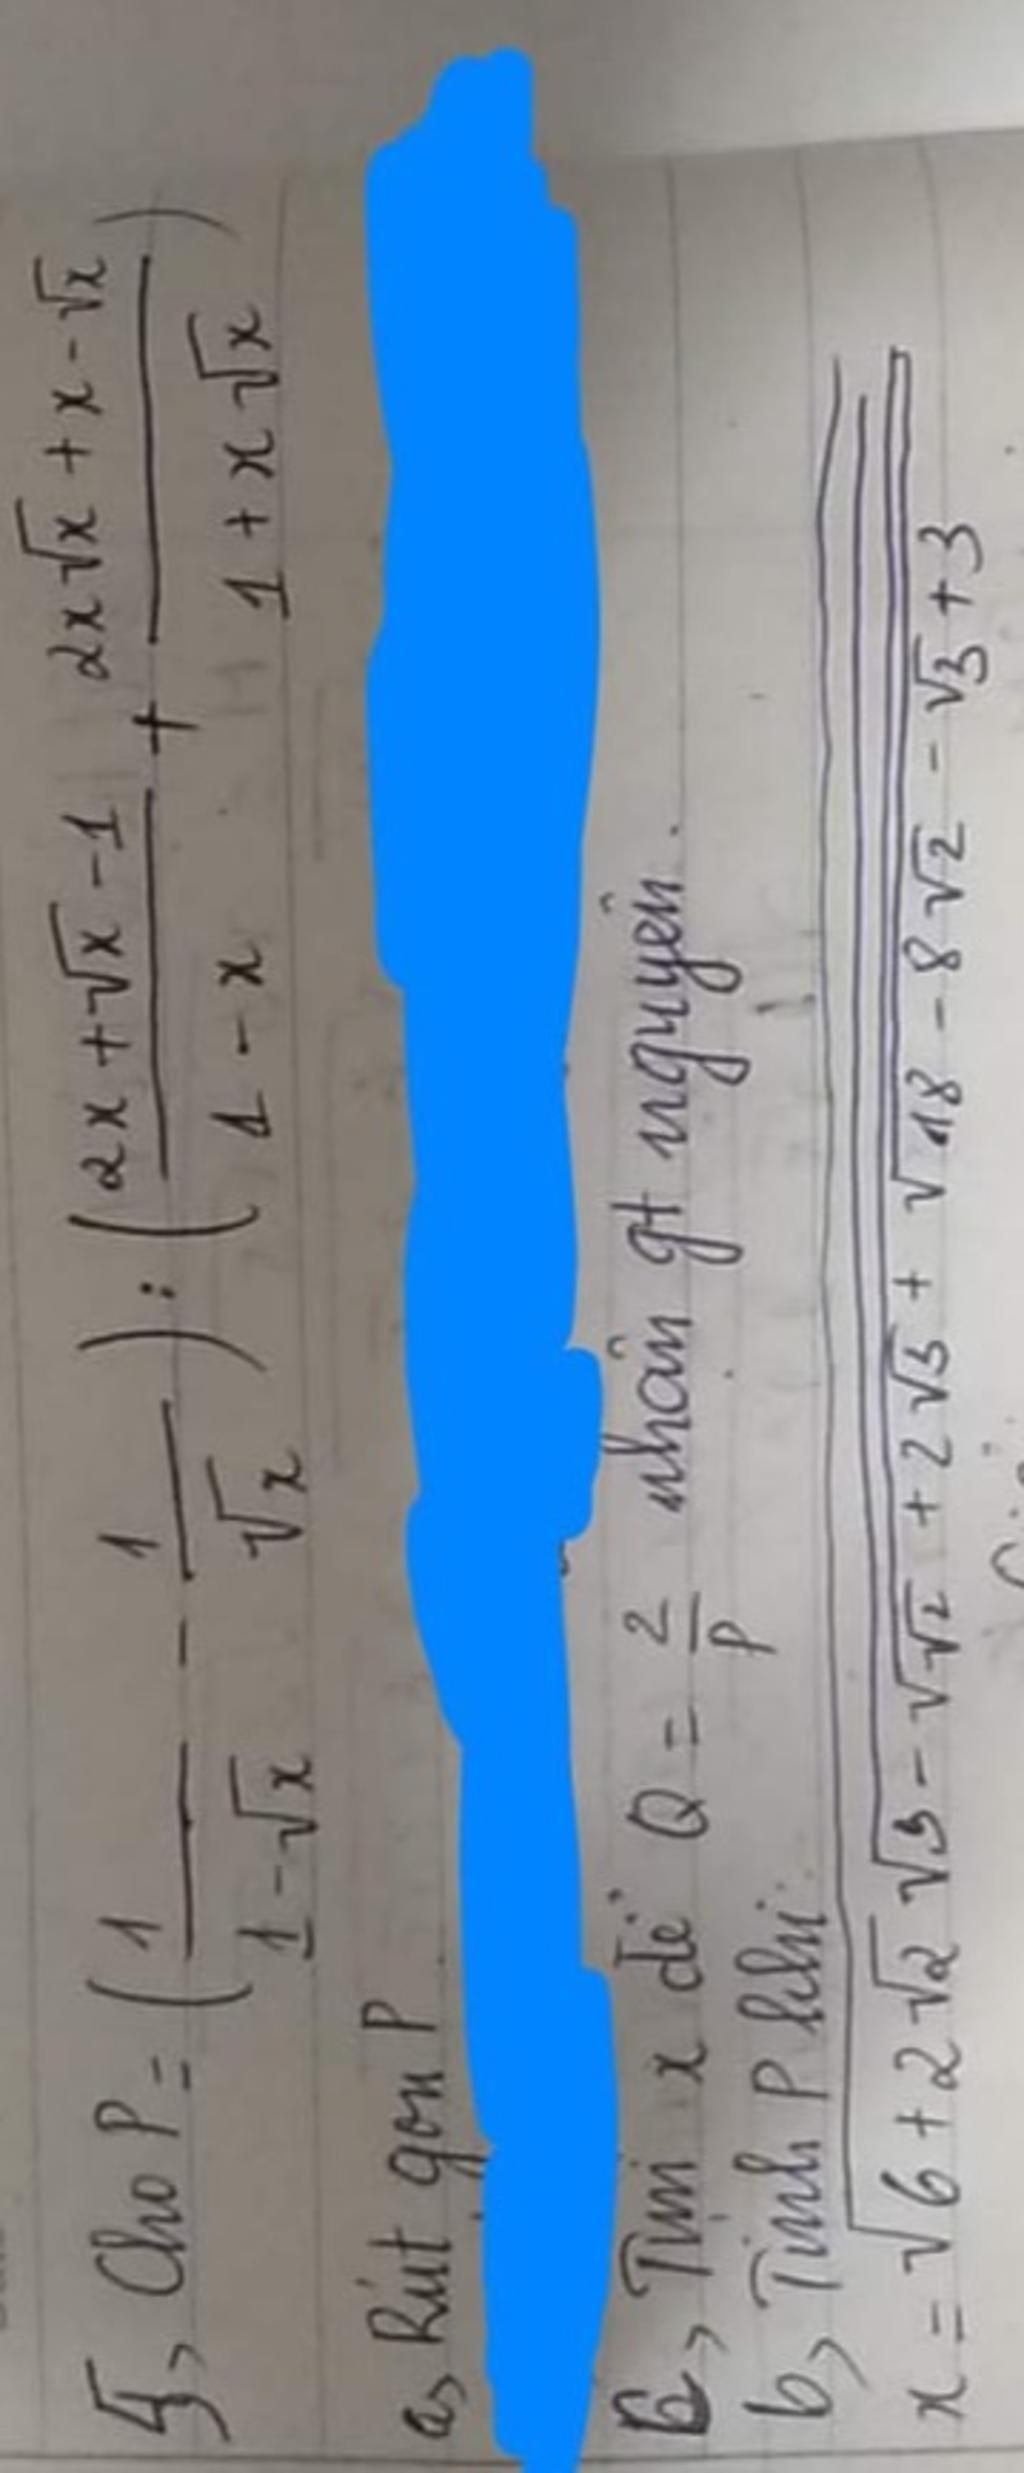 5, Cho P = (1/(1-√x) - 1/√x) : ((2x+√x-1)/(1-x) + (2x√x+x-√x)/(1+x√x))
a, Rút gọn P
c, Tìm x để Q = 2/P nhận gt nguyên.
b, Tính P khi
x = √(6+2√2√(3-√(√2+2√3+√(18-8√2)))) - √3+3